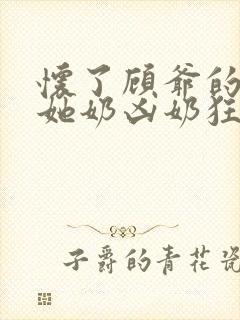 懷了顾爷的
她奶凶奶狂
子爵的青花瓷